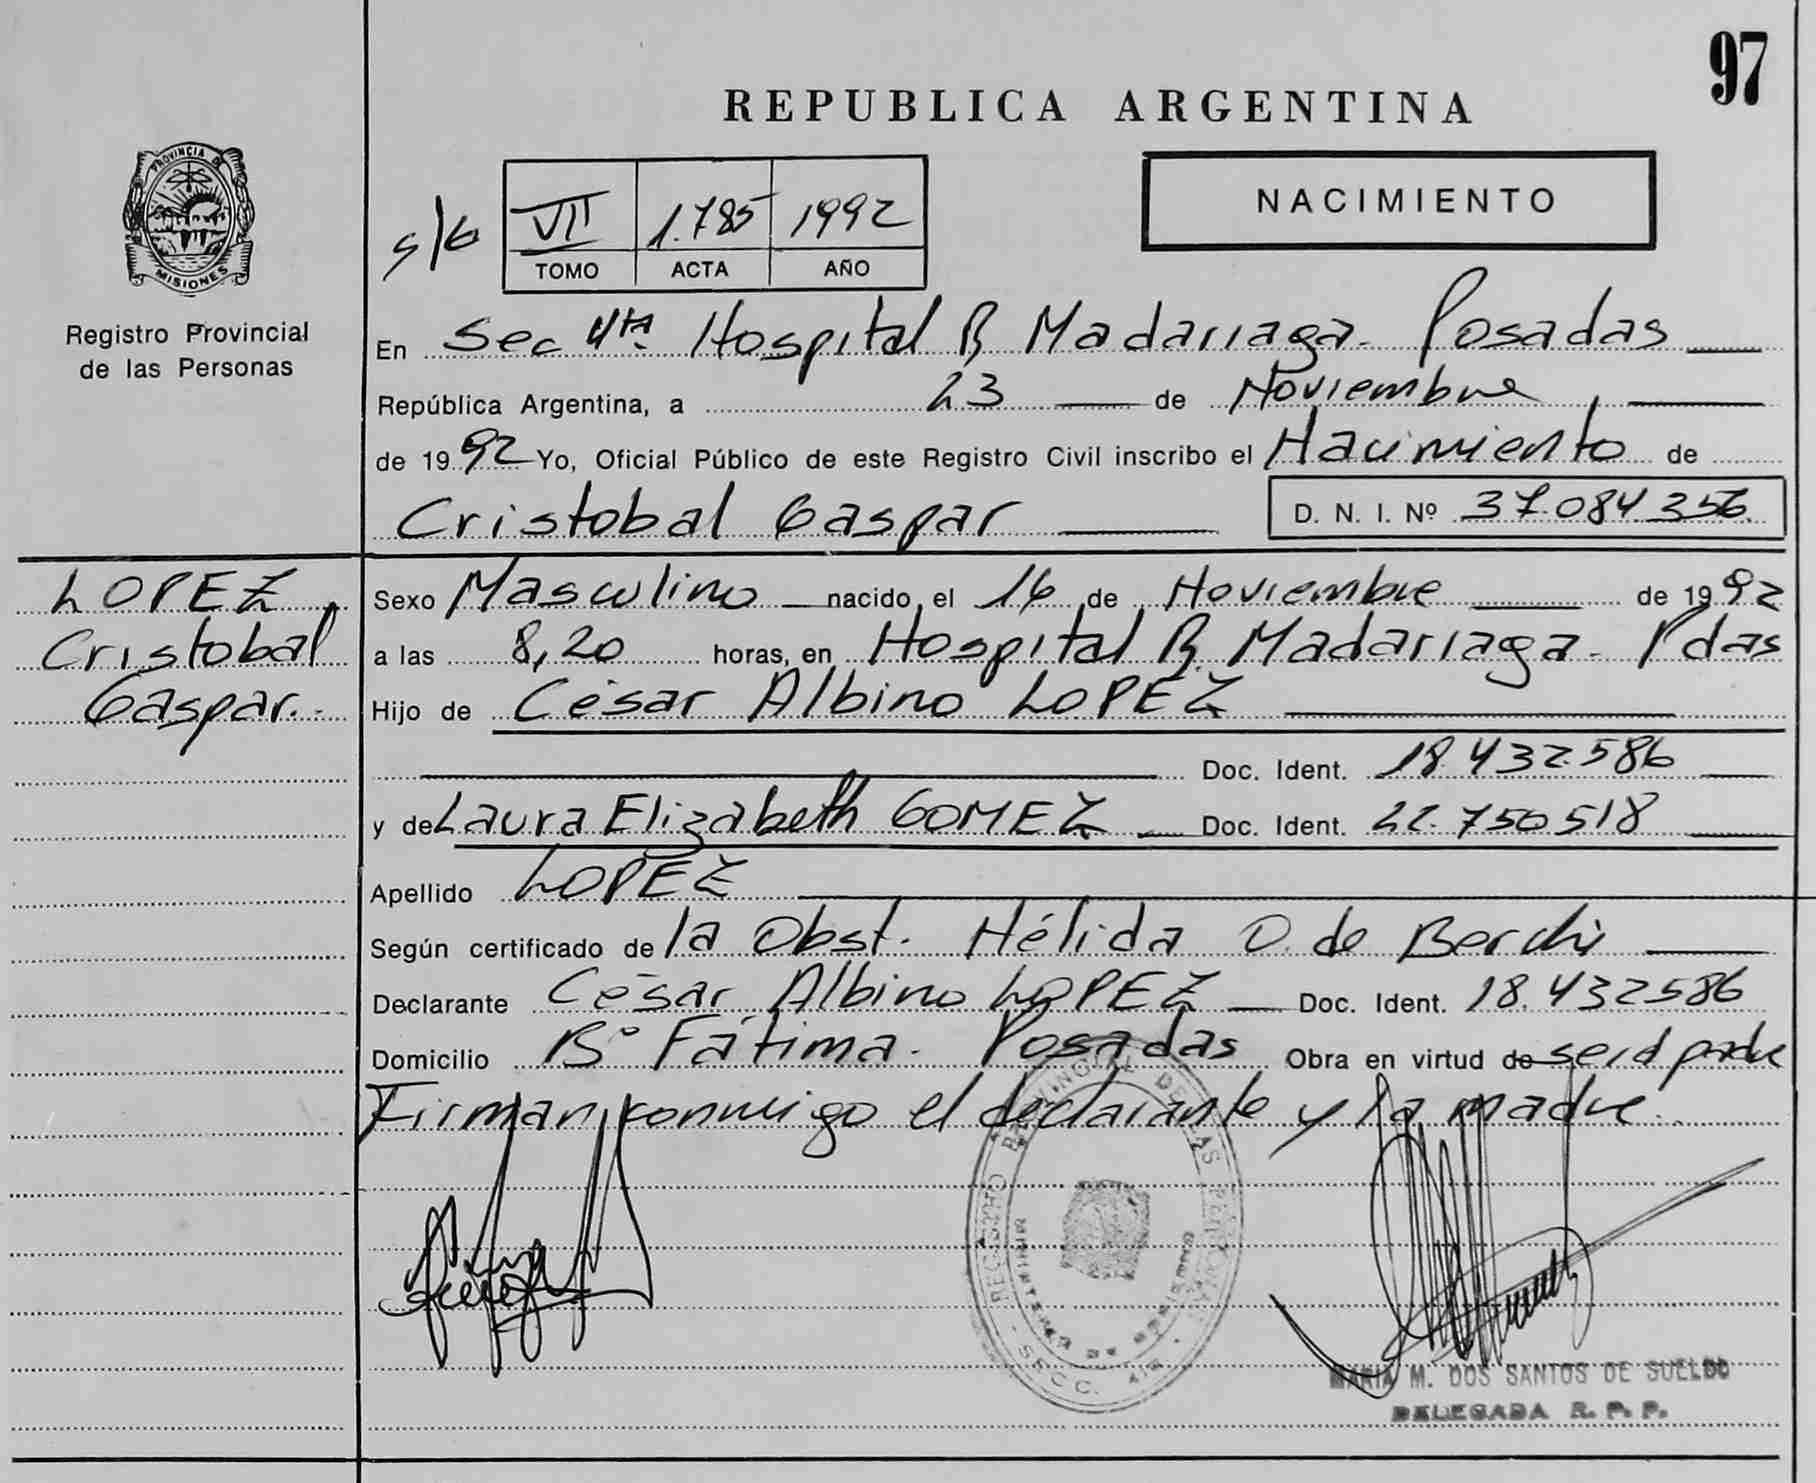 97
REPUBLICA ARGENTINA
PROVINCIA DE
MISIONES
Registro Provincial
de las Personas
s/6
VII 1.785 1992
TOMO ACTA AÑO
NACIMIENTO
En Sec 4ta. Hospital R Madariaga - Posadas
República Argentina, a 23 de Noviembre
de 1992 Yo, Oficial Público de este Registro Civil inscribo el Nacimiento de
Cristobal Gaspar D. N. I. Nº 37.084.356.
LOPEZ,
Cristobal
Gaspar.-
Sexo Masculino nacido el 16 de Noviembre de 1992
a las 8,20 horas, en Hospital R. Madariaga - Pdas
Hijo de César Albino LOPEZ
Doc. Ident. 18.432.586
y de Laura Elizabeth GOMEZ Doc. Ident. 22.750518
Apellido LOPEZ
Según certificado de la Obst. Hélida O. de Berchi
Declarante César Albino LOPEZ Doc. Ident. 18.432586
Domicilio Bº Fátima - Posadas Obra en virtud de ser el padre
Firman conmigo el declarante y la madre.-
REGISTRO PROVINCIAL DE LAS PERSONAS
PROVINCIA DE MISIONES
- SECC. 4ta -
MARIA M. DOS SANTOS DE SUELDO
DELEGADA R. P. P.